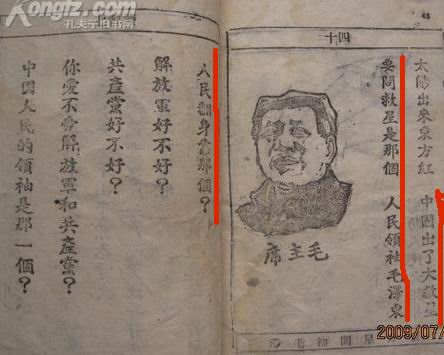 Kongfz.com
孔夫子旧书网
45
四十
太陽出來東方紅 中國出了大救星
要問救星是那個 人民領袖毛澤東
毛主席
人民翻身靠那個？
解放軍好不好？
共產黨好不好？
你愛不愛解放軍和共產黨？
中國人民的領袖是那一個？
2009/07/